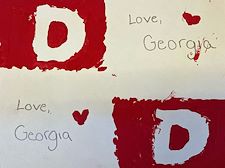 D
Love,
Georgia
Love,
Georgia
D